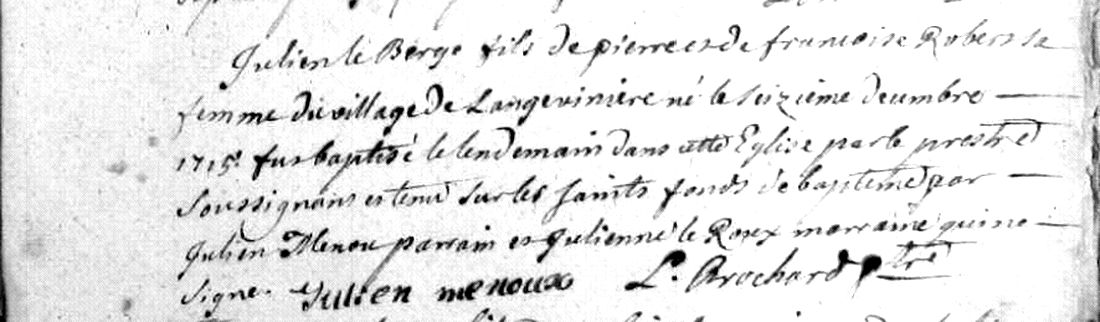 Julien le Berge fils de pierre et de francoise Robert sa
femme du village de Langeviniere né le seizieme decembre
1715. fut baptisé le lendemain dans cette Eglise par le prestre
soussignant et tenu sur les saints fonds de bapteme par
Julien Menou parrain et Julienne le Roux marraine qui ne
signe. Julien menoux L. Brochard ptre